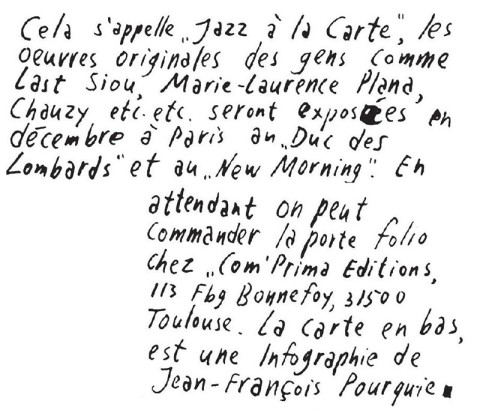 Cela s'appelle „Jazz à la Carte", les
oeuvres originales des gens comme
Last Siou, Marie-Laurence Plana,
Chauzy etc. etc. seront exposées en
décembre à Paris au „Duc des
Lombards" et au „New Morning". En
attendant on peut
commander la porte folio
chez „Com'Prima Editions,
113 Fbg Bonnefoy, 31500
Toulouse. La carte en bas,
est une Infographie de
Jean-François Pourquie.